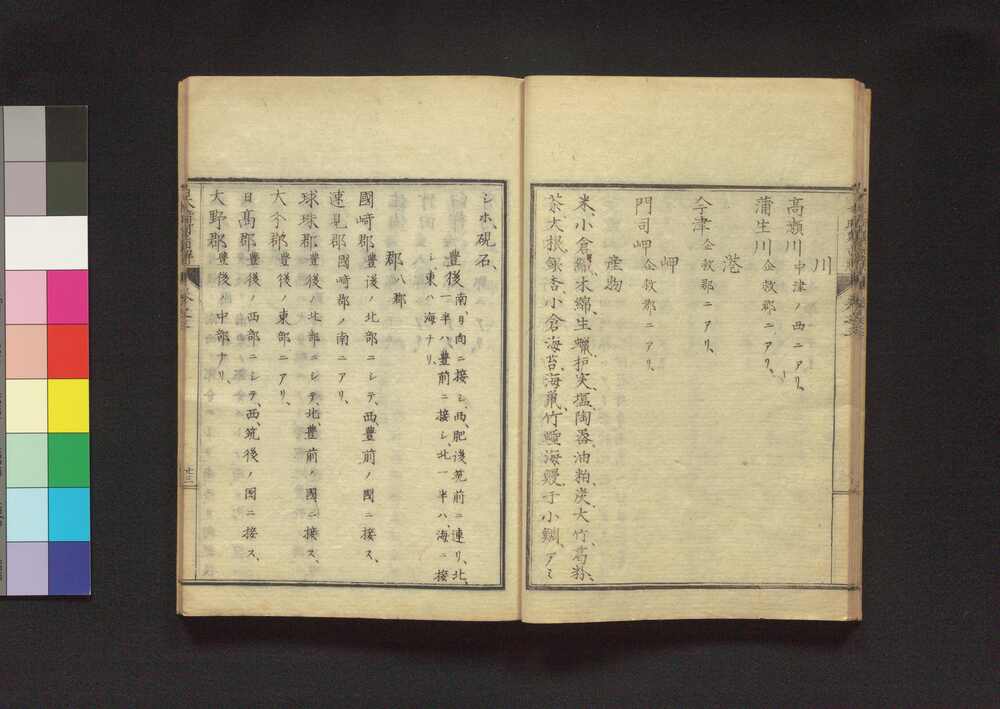 川
高瀬川 中津ノ西ニアリ、
蒲生川 企救郡ニアリ、
港
今津 企救郡ニアリ、
岬
門司岬 企救郡ニアリ、
産物
米、小倉織、木綿、生蝋、炉実、塩、陶器、油粕、炭、大竹、葛粉、
茶、大根、銀杏、小倉海苔、海鼠、竹蟶、海鰻、干小鯛、アミ
シホ、硯石、
豊後 南日向ニ接シ、西、肥後筑前ニ連リ、北、
一半ハ豊前ニ接シ、北一半ハ、海ニ接
シ、東ハ海ナリ、
郡 八郡
國﨑郡 豊後ノ北部ニシテ、西、豊前ノ國ニ接ス、
速見郡 國﨑郡ノ南ニアリ、
球珠郡 豊後ノ北部ニシテ、北豊前ノ國ニ接ス、
大分郡 豊後ノ東部ニアリ、
日髙郡 豊後ノ西部ニシテ、西、筑後ノ國ニ接ス、
大野郡 豊後ノ中部ナリ、
廿三